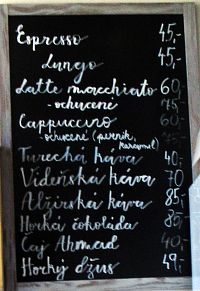 Espresso 45,-
Lungo 45,-
Latte macchiato 60,-
- ochucené 75,-
Cappuccino 60,-
- ochucené (perník, karamel)
Turecká káva 40,-
Vídeňská káva 70
Alžírská káva 85,-
Horká čokoláda 85,-
Čaj Ahmad 40,-
Horký džus 49,-